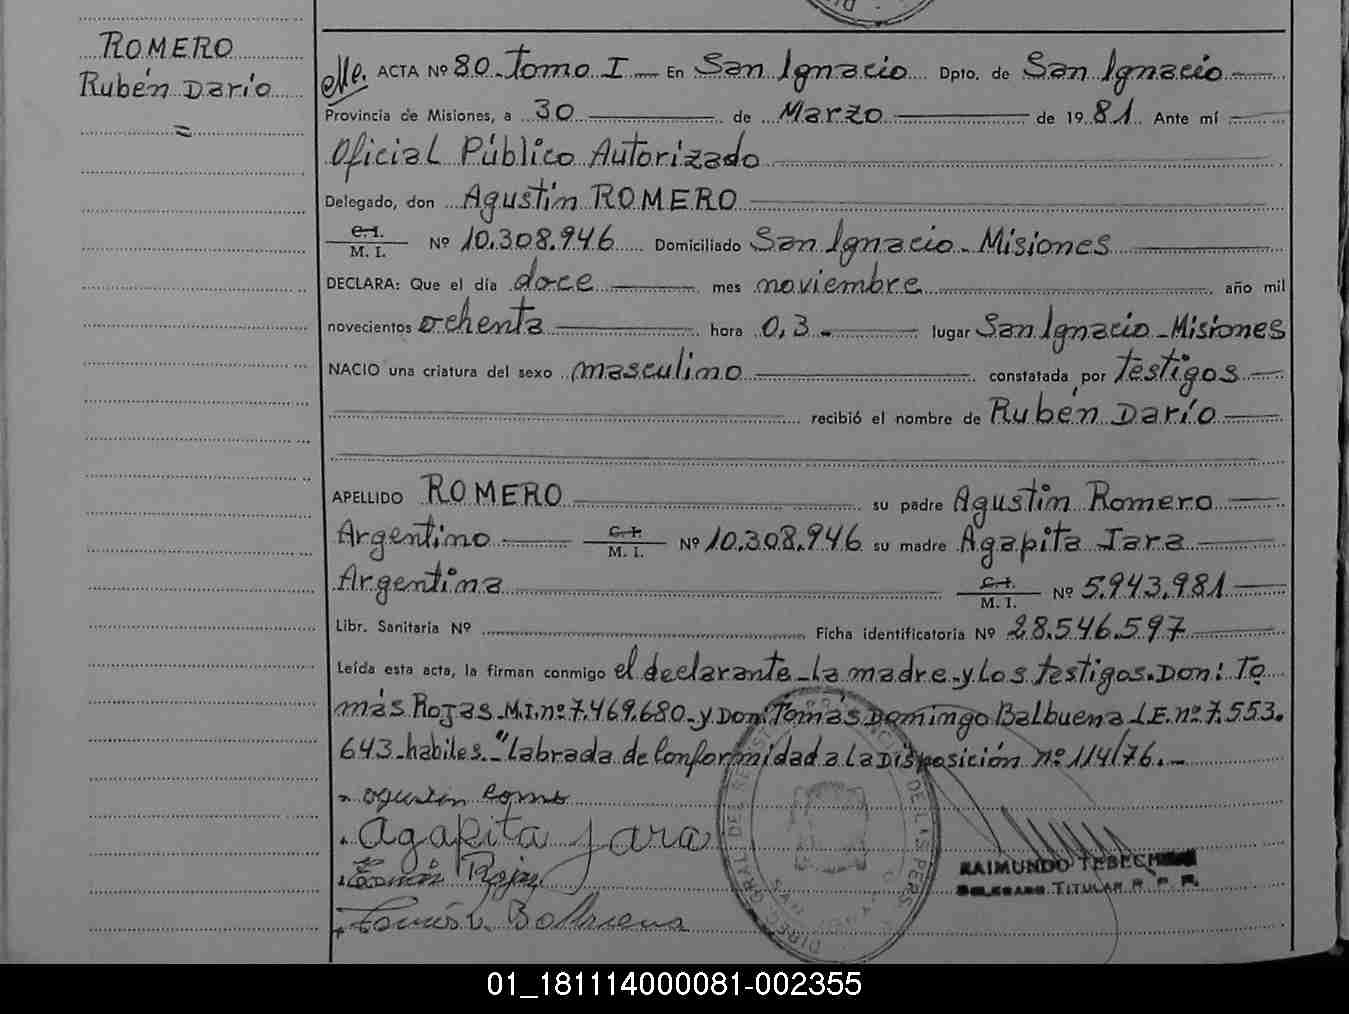 ROMERO
Rubén Darío
=
ACTA Nº 80 Tomo I En San Ignacio Dpto. de San Ignacio
Provincia de Misiones, a 30 de Marzo de 1981. Ante mí
Oficial Público Autorizado
Delegado, don Agustín ROMERO
C.I.
M. I. Nº 10.308.946 Domiciliado San Ignacio - Misiones
DECLARA: Que el día doce mes noviembre año mil
novecientos ochenta hora 0,3 lugar San Ignacio - Misiones
NACIO una criatura del sexo masculino constatada por testigos
recibió el nombre de Rubén Darío
APELLIDO ROMERO su padre Agustín Romero
Argentino C.I. M. I. Nº 10.308.946 su madre Agapita Jara
Argentina C.I. M. I. Nº 5.943.981
Libr. Sanitaria Nº Ficha identificatoria Nº 28.546.597
Leída esta acta, la firman conmigo el declarante - la madre - y los testigos. Don: To
más Rojas - M.I. nº 7.469.680 - y Don: Tomás Domingo Balbuena L.E. nº 7.553.
643 - habiles. - "Labrada de Conformidad a la Disposición nº 114/76. -
Agapita Jara
RAIMUNDO
TITULAR R. P. P.
01_181114000081-002355